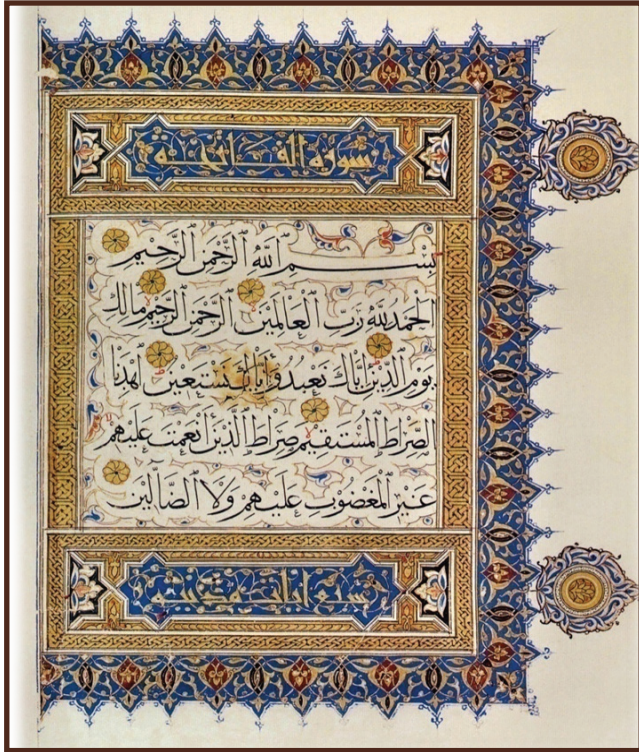 سورة الفاتحة
بسم الله الرحمن الرحيم
الحمد لله رب العالمين الرحمن الرحيم مالك
يوم الدين اياك نعبد واياك نستعين اهدنا
الصراط المستقيم صراط الذين انعمت عليهم
غير المغضوب عليهم ولا الضالين
سبع ايات